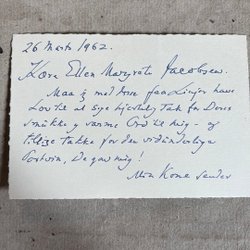 26 Marts 1962.
Kære Ellen Margrete Jacobsen.
Maa jeg med disse faa Linjer have
Lov til at sige hjertelig Tak for Deres
smukke og varme Ord til mig - og
tillige takke for den vidunderlige
Portvin, De gav mig!
Min Kone sender